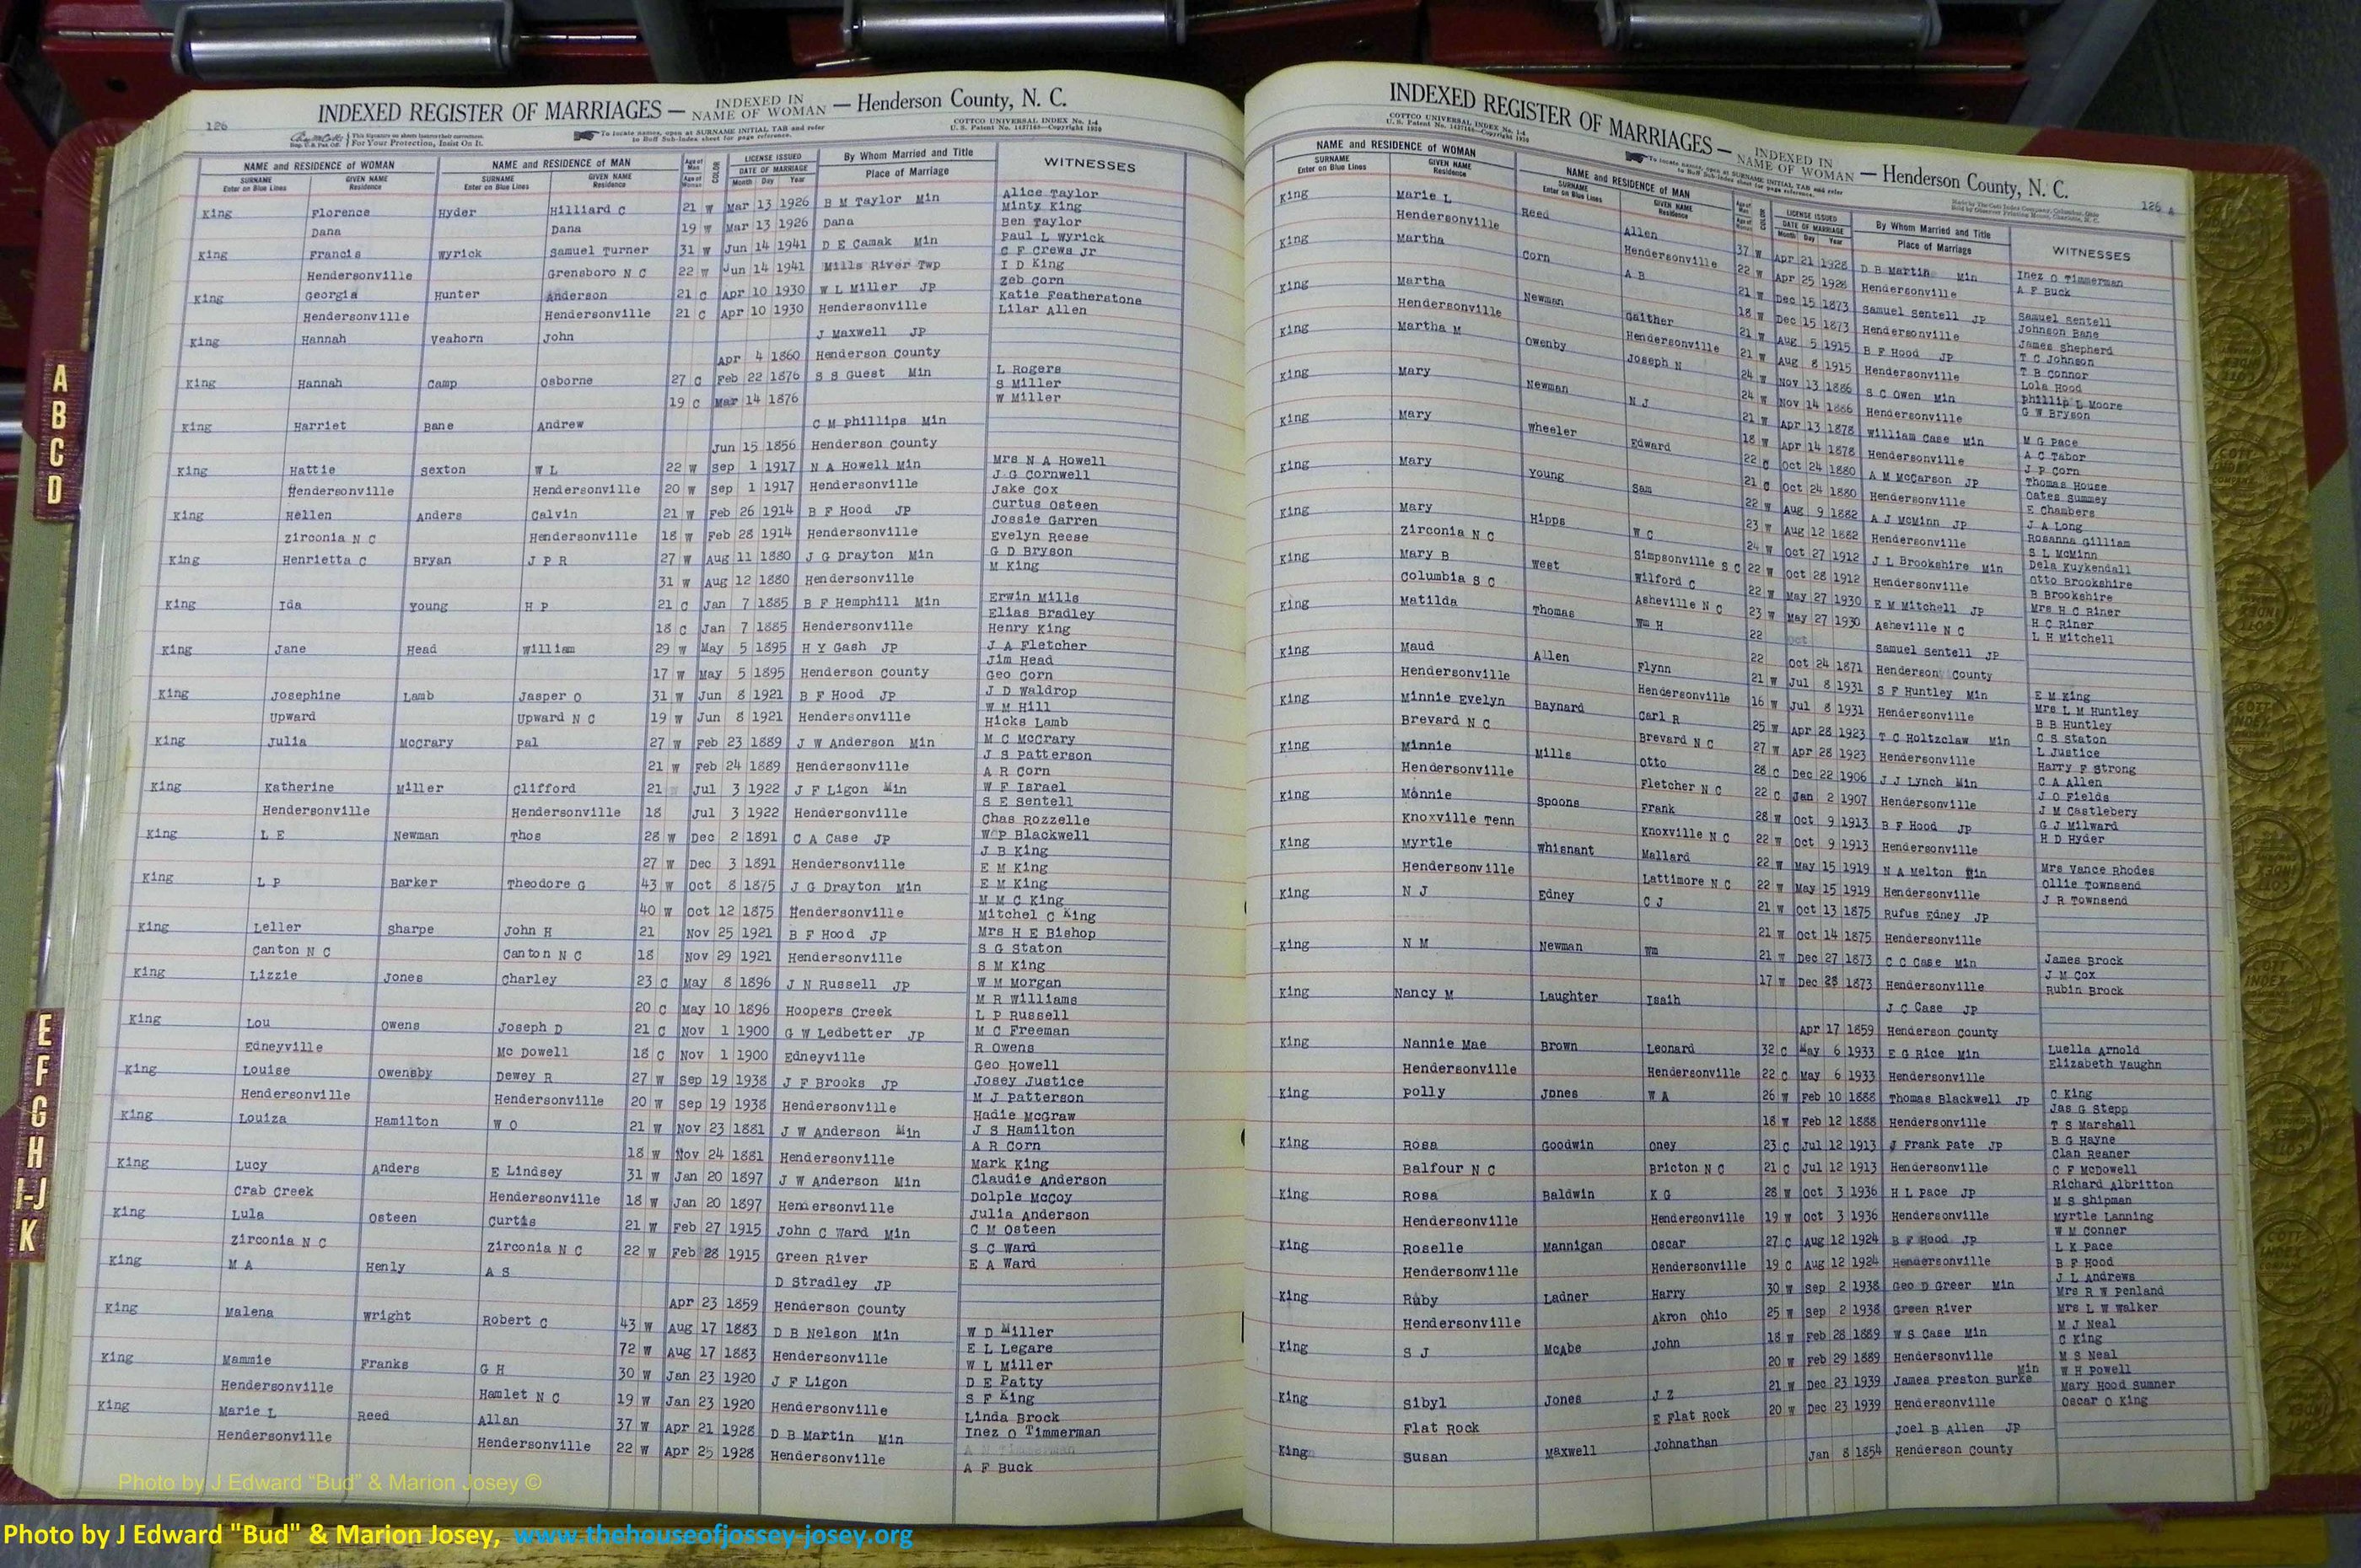 126
INDEXED REGISTER OF MARRIAGES — INDEXED IN NAME OF WOMAN — Henderson County, N. C.
This Signature on sheets insures their correctness.
For Your Protection, Insist On It.
To locate names, open at SURNAME INITIAL TAB and refer to Buff Sub-Index sheet for page reference.
COTTCO UNIVERSAL INDEX No. 1-4
U. S. Patent No. 1437168—Copyright 1930
NAME and RESIDENCE OF WOMAN NAME and RESIDENCE OF MAN Age of Man COLOR LICENSE ISSUED By Whom Married and Title WITNESSES
SURNAME Enter on Blue Lines GIVEN NAME Residence SURNAME Enter on Blue Lines GIVEN NAME Residence Age of Woman DATE OF MARRIAGE Month Day Year Place of Marriage
King Florence Hyder Hilliard C 21 W Mar 13 1926 B M Taylor Min Alice Taylor
Minty King
Dana Dana 19 W Mar 13 1926 Dana Ben Taylor
King Francis Wyrick Samuel Turner 31 W Jun 14 1941 D E Camak Min Paul L Wyrick
C F Crews Jr
Hendersonville Grensboro N C 22 W Jun 14 1941 Mills River Twp I D King
King Georgia Hunter Anderson 21 C Apr 10 1930 W L Miller JP Zeb Corn
Katie Featherstone
Hendersonville Hendersonville 21 C Apr 10 1930 Hendersonville Lilar Allen
King Hannah Veahorn John J Maxwell JP
Apr 4 1860 Henderson County
King Hannah Camp Osborne 27 C Feb 22 1876 S S Guest Min L Rogers
S Miller
19 C Mar 14 1876 W Miller
King Harriet Bane Andrew C M Phillips Min
Jun 15 1856 Henderson County
King Hattie Sexton W L 22 W Sep 1 1917 N A Howell Min Mrs N A Howell
J G Cornwell
Hendersonville Hendersonville 20 W Sep 1 1917 Hendersonville Jake Cox
King Hellen Anders Calvin 21 W Feb 26 1914 B F Hood JP Curtus Osteen
Jossie Garren
Zirconia N C Hendersonville 18 W Feb 28 1914 Hendersonville Evelyn Reese
King Henrietta C Bryan J P R 27 W Aug 11 1880 J G Drayton Min G D Bryson
M King
31 W Aug 12 1880 Hendersonville
King Ida Young H P 21 C Jan 7 1885 B F Hemphill Min Erwin Mills
Elias Bradley
18 C Jan 7 1885 Hendersonville Henry King
King Jane Head William 29 W May 5 1895 H Y Gash JP J A Fletcher
Jim Head
17 W May 5 1895 Henderson County Geo Corn
King Josephine Lamb Jasper O 31 W Jun 8 1921 B F Hood JP J D Waldrop
W M Hill
Upward Upward N C 19 W Jun 8 1921 Hendersonville Hicks Lamb
King Julia McCrary Pal 27 W Feb 23 1889 J W Anderson Min M C McCrary
J S Patterson
21 W Feb 24 1889 Hendersonville A R Corn
King Katherine Miller Clifford 21 Jul 3 1922 J F Ligon Min W F Israel
S E Sentell
Hendersonville Hendersonville 18 Jul 3 1922 Hendersonville Chas Rozzelle
King L E Newman Thos 28 W Dec 2 1891 C A Case JP W P Blackwell
J B King
27 W Dec 3 1891 Hendersonville E M King
King L P Barker Theodore G 43 W Oct 8 1875 J G Drayton Min E M King
M M C King
40 W Oct 12 1875 Hendersonville Mitchel C King
King Leller Sharpe John H 21 Nov 25 1921 B F Hood JP Mrs H E Bishop
S G Staton
Canton N C Canton N C 18 Nov 29 1921 Hendersonville S M King
King Lizzie Jones Charley 23 C May 8 1896 J N Russell JP W M Morgan
M R Williams
20 C May 10 1896 Hoopers Creek L P Russell
King Lou Owens Joseph D 21 C Nov 1 1900 G W Ledbetter JP M C Freeman
R Owens
Edneyville Mc Dowell 18 C Nov 1 1900 Edneyville Geo Howell
King Louise Owensby Dewey R 27 W Sep 19 1938 J F Brooks JP Josey Justice
M J Patterson
Hendersonville Hendersonville 20 W Sep 19 1938 Hendersonville Hadie McGraw
King Louiza Hamilton W O 21 W Nov 23 1881 J W Anderson Min J S Hamilton
A R Corn
18 W Nov 24 1881 Hendersonville Mark King
King Lucy Anders E Lindsey 31 W Jan 20 1897 J W Anderson Min Claudie Anderson
Dolple McCoy
Crab Creek Hendersonville 18 W Jan 20 1897 Hemersonville Julia Anderson
King Lula Osteen Curtis 21 W Feb 27 1915 John C Ward Min C M Osteen
S C Ward
Zirconia N C Zirconia N C 22 W Feb 28 1915 Green River E A Ward
King M A Henly A S D Stradley JP
Apr 23 1859 Henderson County
King Malena Wright Robert C 43 W Aug 17 1883 D B Nelson Min W D Miller
E L Legare
72 W Aug 17 1883 Hendersonville W L Miller
King Mammie Franks G H 30 W Jan 23 1920 J F Ligon D E Patty
S F King
Hendersonville Hamlet N C 19 W Jan 23 1920 Hendersonville Linda Brock
King Marie L Reed Allan 37 W Apr 21 1928 D B Martin Min Inez O Timmerman
Hendersonville Hendersonville 22 W Apr 25 1928 Hendersonville A F Buck
INDEXED REGISTER OF MARRIAGES — INDEXED IN NAME OF WOMAN — Henderson County, N. C.
126 A
COTTCO UNIVERSAL INDEX No. 1-4
U. S. Patent No. 1437168—Copyright 1930
To locate names, open at SURNAME INITIAL TAB and refer to Buff Sub-Index sheet for page reference.
NAME and RESIDENCE OF WOMAN NAME and RESIDENCE OF MAN Age of Man COLOR LICENSE ISSUED By Whom Married and Title WITNESSES
SURNAME Enter on Blue Lines GIVEN NAME Residence SURNAME Enter on Blue Lines GIVEN NAME Residence Age of Woman DATE OF MARRIAGE Month Day Year Place of Marriage
King Marie L Reed Allen 37 W Apr 21 1928 D B Martin Min Inez O Timmerman
Hendersonville Hendersonville 22 W Apr 25 1928 Hendersonville A F Buck
King Martha Corn A B 21 W Dec 15 1873 Samuel Sentell JP Samuel Sentell
Johnson Bane
18 W Dec 15 1873 Hendersonville James Shepherd
King Martha Newman Gaither 21 W Aug 5 1915 B F Hood JP T C Johnson
T B Connor
Hendersonville Hendersonville 21 W Aug 8 1915 Hendersonville Lola Hood
King Martha M Owenby Joseph N 24 W Nov 13 1886 S C Owen Min Phillip L Moore
G W Bryson
24 W Nov 14 1886 Hendersonville
King Mary Newman N J 21 W Apr 13 1878 William Case Min M G Pace
A C Tabor
18 W Apr 14 1878 Hendersonville J P Corn
King Mary Wheeler Edward 22 C Oct 24 1880 A M McCarson JP Thomas House
Oates Summey
21 C Oct 24 1880 Hendersonville E Chambers
King Mary Young Sam 22 W Aug 9 1882 A J McMinn JP J A Long
Rosanna Gilliam
23 W Aug 12 1882 Hendersonville S L McMinn
King Mary Hipps W C 24 W Oct 27 1912 J L Brookshire Min Dela Kuykendall
Otto Brookshire
Zirconia N C Simpsonville S C 22 W Oct 28 1912 Hendersonville B Brookshire
King Mary B West Wilford C 22 W May 27 1930 E M Mitchell JP Mrs H C Riner
H C Riner
Columbia S C Asheville N C 23 W May 27 1930 Asheville N C L H Mitchell
King Matilda Thomas Wm H 22 Oct Samuel Sentell JP
22 Oct 24 1871 Henderson County
King Maud Allen Flynn 21 W Jul 8 1931 S F Huntley Min E M King
Mrs L M Huntley
Hendersonville Hendersonville 16 W Jul 8 1931 Hendersonville B B Huntley
King Minnie Evelyn Baynard Carl R 25 W Apr 28 1923 T C Holtzclaw Min C S Staton
L Justice
Brevard N C Brevard N C 27 W Apr 28 1923 Hendersonville Harry F Strong
King Minnie Mills Otto 28 C Dec 22 1906 J J Lynch Min C A Allen
J O Fields
Hendersonville Fletcher N C 22 C Jan 2 1907 Hendersonville J M Castlebery
King Monnie Spoons Frank 28 W Oct 9 1913 B F Hood JP G J Milward
H D Hyder
Knoxville Tenn Knoxville N C 22 W Oct 9 1913 Hendersonville
King Myrtle Whisnant Mallard 22 W May 15 1919 N A Melton Min Mrs Vance Rhodes
Ollie Townsend
Hendersonville Lattimore N C 22 W May 15 1919 Hendersonville J R Townsend
King N J Edney C J 21 W Oct 13 1875 Rufus Edney JP
21 W Oct 14 1875 Hendersonville
King N M Newman Wm 21 W Dec 27 1873 C C Case Min James Brock
J M Cox
17 W Dec 28 1873 Hendersonville Rubin Brock
King Nancy M Laughter Isaih J C Case JP
Apr 17 1859 Henderson County
King Nannie Mae Brown Leonard 32 C May 6 1933 E G Rice Min Luella Arnold
Elizabeth Vaughn
Hendersonville Hendersonville 22 C May 6 1933 Hendersonville
King Polly Jones W A 26 W Feb 10 1888 Thomas Blackwell JP C King
Jas G Stepp
18 W Feb 12 1888 Hendersonville T S Marshall
King Rosa Goodwin Oney 23 C Jul 12 1913 J Frank Pate JP B G Hayne
Clan Reaner
Balfour N C Bricton N C 21 C Jul 12 1913 Hendersonville C F McDowell
King Rosa Baldwin K G 28 W Oct 3 1936 H L Pace JP Richard Albritton
M S Shipman
Hendersonville Hendersonville 19 W Oct 3 1936 Hendersonville Myrtle Lanning
King Roselle Mannigan Oscar 27 C Aug 12 1924 B F Hood JP W M Conner
L K Pace
Hendersonville Hendersonville 19 C Aug 12 1924 Hendersonville B F Hood
King Ruby Ladner Harry 30 W Sep 2 1938 Geo D Greer Min J L Andrews
Mrs R W Penland
Hendersonville Akron Ohio 25 W Sep 2 1938 Green River Mrs L W Walker
King S J McAbe John 18 W Feb 28 1889 W S Case Min M J Neal
C King
20 W Feb 29 1889 Hendersonville M S Neal
King Sibyl Jones J Z 21 W Dec 23 1939 James Preston Burke Min W H Powell
Mary Hood Sumner
Flat Rock E Flat Rock 20 W Dec 23 1939 Hendersonville Oscar O King
King Susan Maxwell Johnathan Joel B Allen JP
Jan 8 1854 Henderson County
A
B
C
D
E
F
G
H
I-J
K
Photo by J Edward “Bud” & Marion Josey ©
Photo by J Edward "Bud" & Marion Josey, www.thehouseofjossey-josey.org